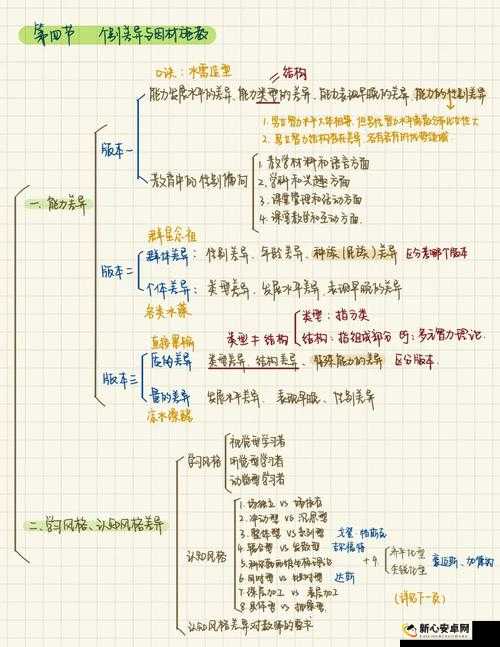 第四节 个别差异与因材施教
口诀：水雷造型
= 结构
能力发展水平的差异、能力类型的差异、能力表现早晚的差异、能力的性别差异
1. 男女智力水平大体相等，但男性智力水平离散分布比女性大
2. 男女智力结构存在差异，各有各自的优势领域
版本一
教育中的性别偏向
1. 教学材料和语言方面
2. 学科和兴趣方面
3. 课堂管理和活动方面
4. 课堂教学和互动方面
一、能力差异
群星众祖
版本二
群体差异：性别差异、年龄差异、种族（民族）差异 区分考哪个版本
个体差异：类型差异、发展水平差异、表现早晚的差异
各类水藻
类型：指分类
类型 ≠ 结构
结构：指组成部分 eg：多元智力理论
版本三
质的差异 类型差异、结构差异、特殊能力的差异 区分版本
量的差异 发展水平差异、表现早晚、性别差异
二、学习风格、认知风格差异
学习风格
视觉型学习者
听觉型学习者
动觉型学习者
认知风格
1. 场独立 vs 场依存
2. 冲动型 vs 沉思型
3. 整体型 vs 系列型
4. 辐合型 vs 发散型 吉尔福特
6. 同时型 vs 继时型 达斯
7. 深层加工 vs 表层加工
8. 具体型 vs 抽象型
+ 9.
（详见下一页）
认知风格差异对教师的要求
新心安卓网